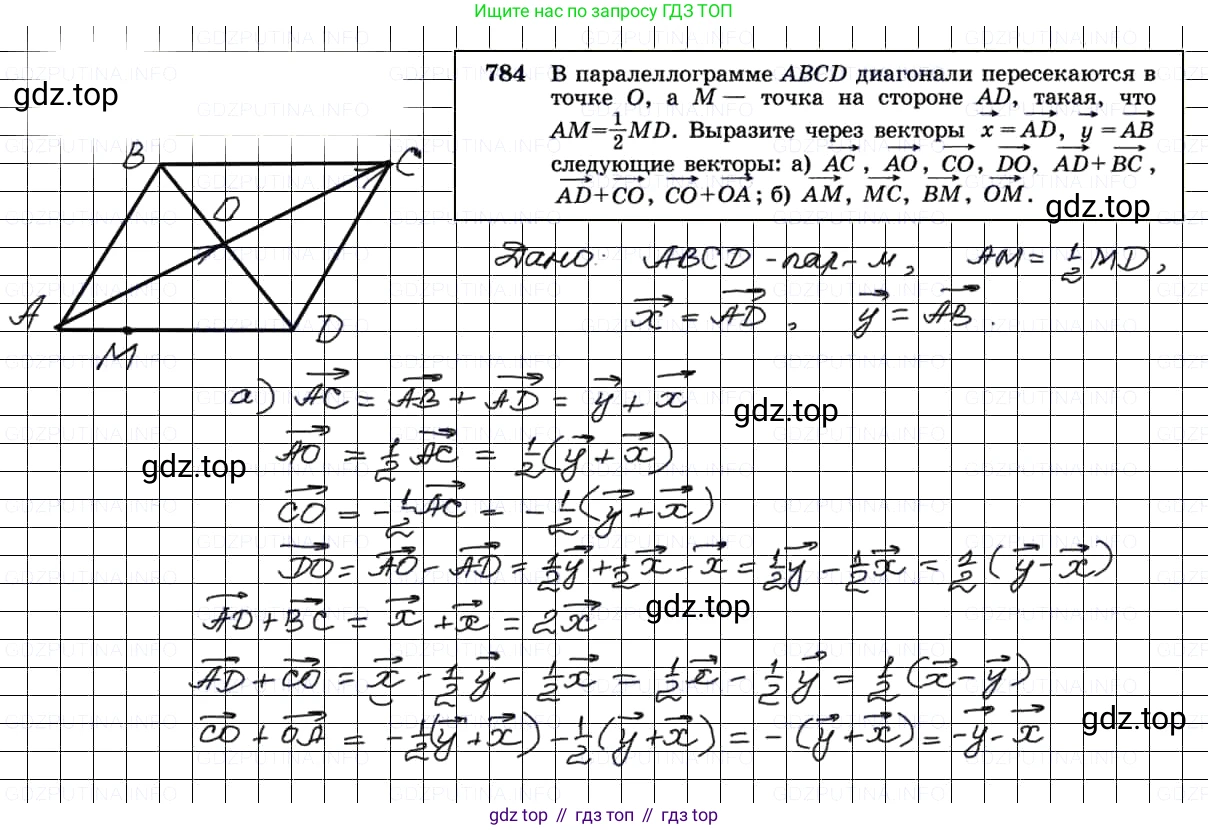 Ищите нас по запросу ГДЗ ТОП
gdz.top
784 В паралеллограмме ABCD диагонали пересекаются в
точке O, а M — точка на стороне AD, такая, что
AM=½MD. Выразите через векторы x⃗ = AD⃗, y⃗ = AB⃗
следующие векторы: а) AC⃗, AO⃗, CO⃗, DO⃗, AD⃗+BC⃗,
AD⃗+CO⃗, CO⃗+OA⃗; б) AM⃗, MC⃗, BM⃗, OM⃗.
gdz.top
B
C
O
A
M
D
Дано: ABCD - пар-м, AM = ½ MD,
x⃗ = AD⃗, y⃗ = AB⃗.
а) AC⃗ = AB⃗ + AD⃗ = y⃗ + x⃗
gdz.top
AO⃗ = ½ AC⃗ = ½(y⃗ + x⃗)
gdz.top
CO⃗ = -½ AC⃗ = -½(y⃗ + x⃗)
DO⃗ = AO⃗ - AD⃗ = ½y⃗ + ½x⃗ - x⃗ = ½y⃗ - ½x⃗ = ½(y⃗ - x⃗)
AD⃗ + BC⃗ = x⃗ + x⃗ = 2x⃗
gdz.top
AD⃗ + CO⃗ = x⃗ - ½y⃗ - ½x⃗ = ½x⃗ - ½y⃗ = ½(x⃗ - y⃗)
CO⃗ + OA⃗ = -½(y⃗ + x⃗) - ½(y⃗ + x⃗) = -(y⃗ + x⃗) = -y⃗ - x⃗
gdz.top
gdz top // гдз топ // gdz top